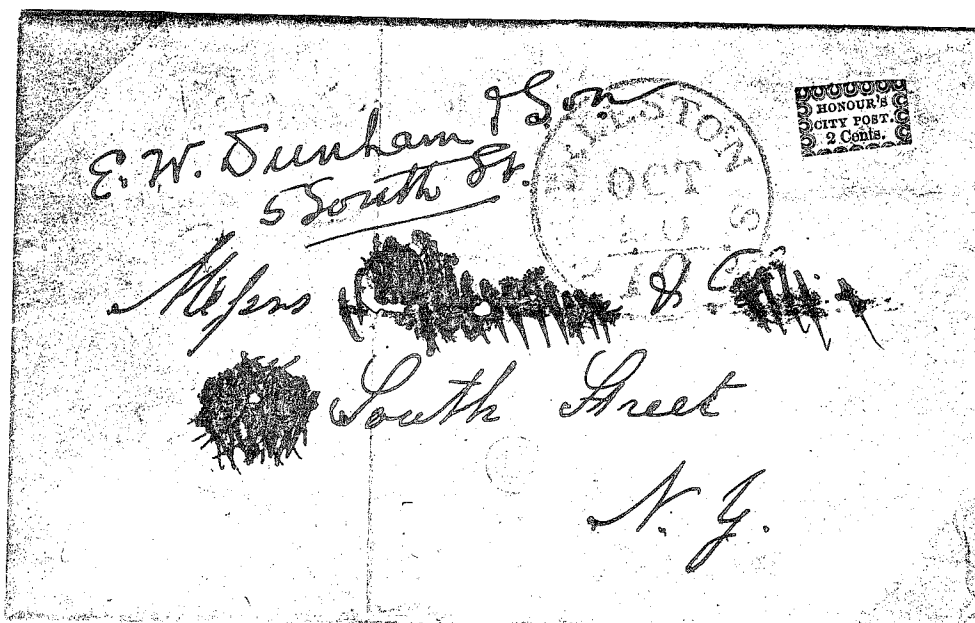 E. W. Dunham & Son
5 South St.
HONOUR'S
CITY POST.
2 Cents.
OCT
10
Messrs &
South Street
N. Y.